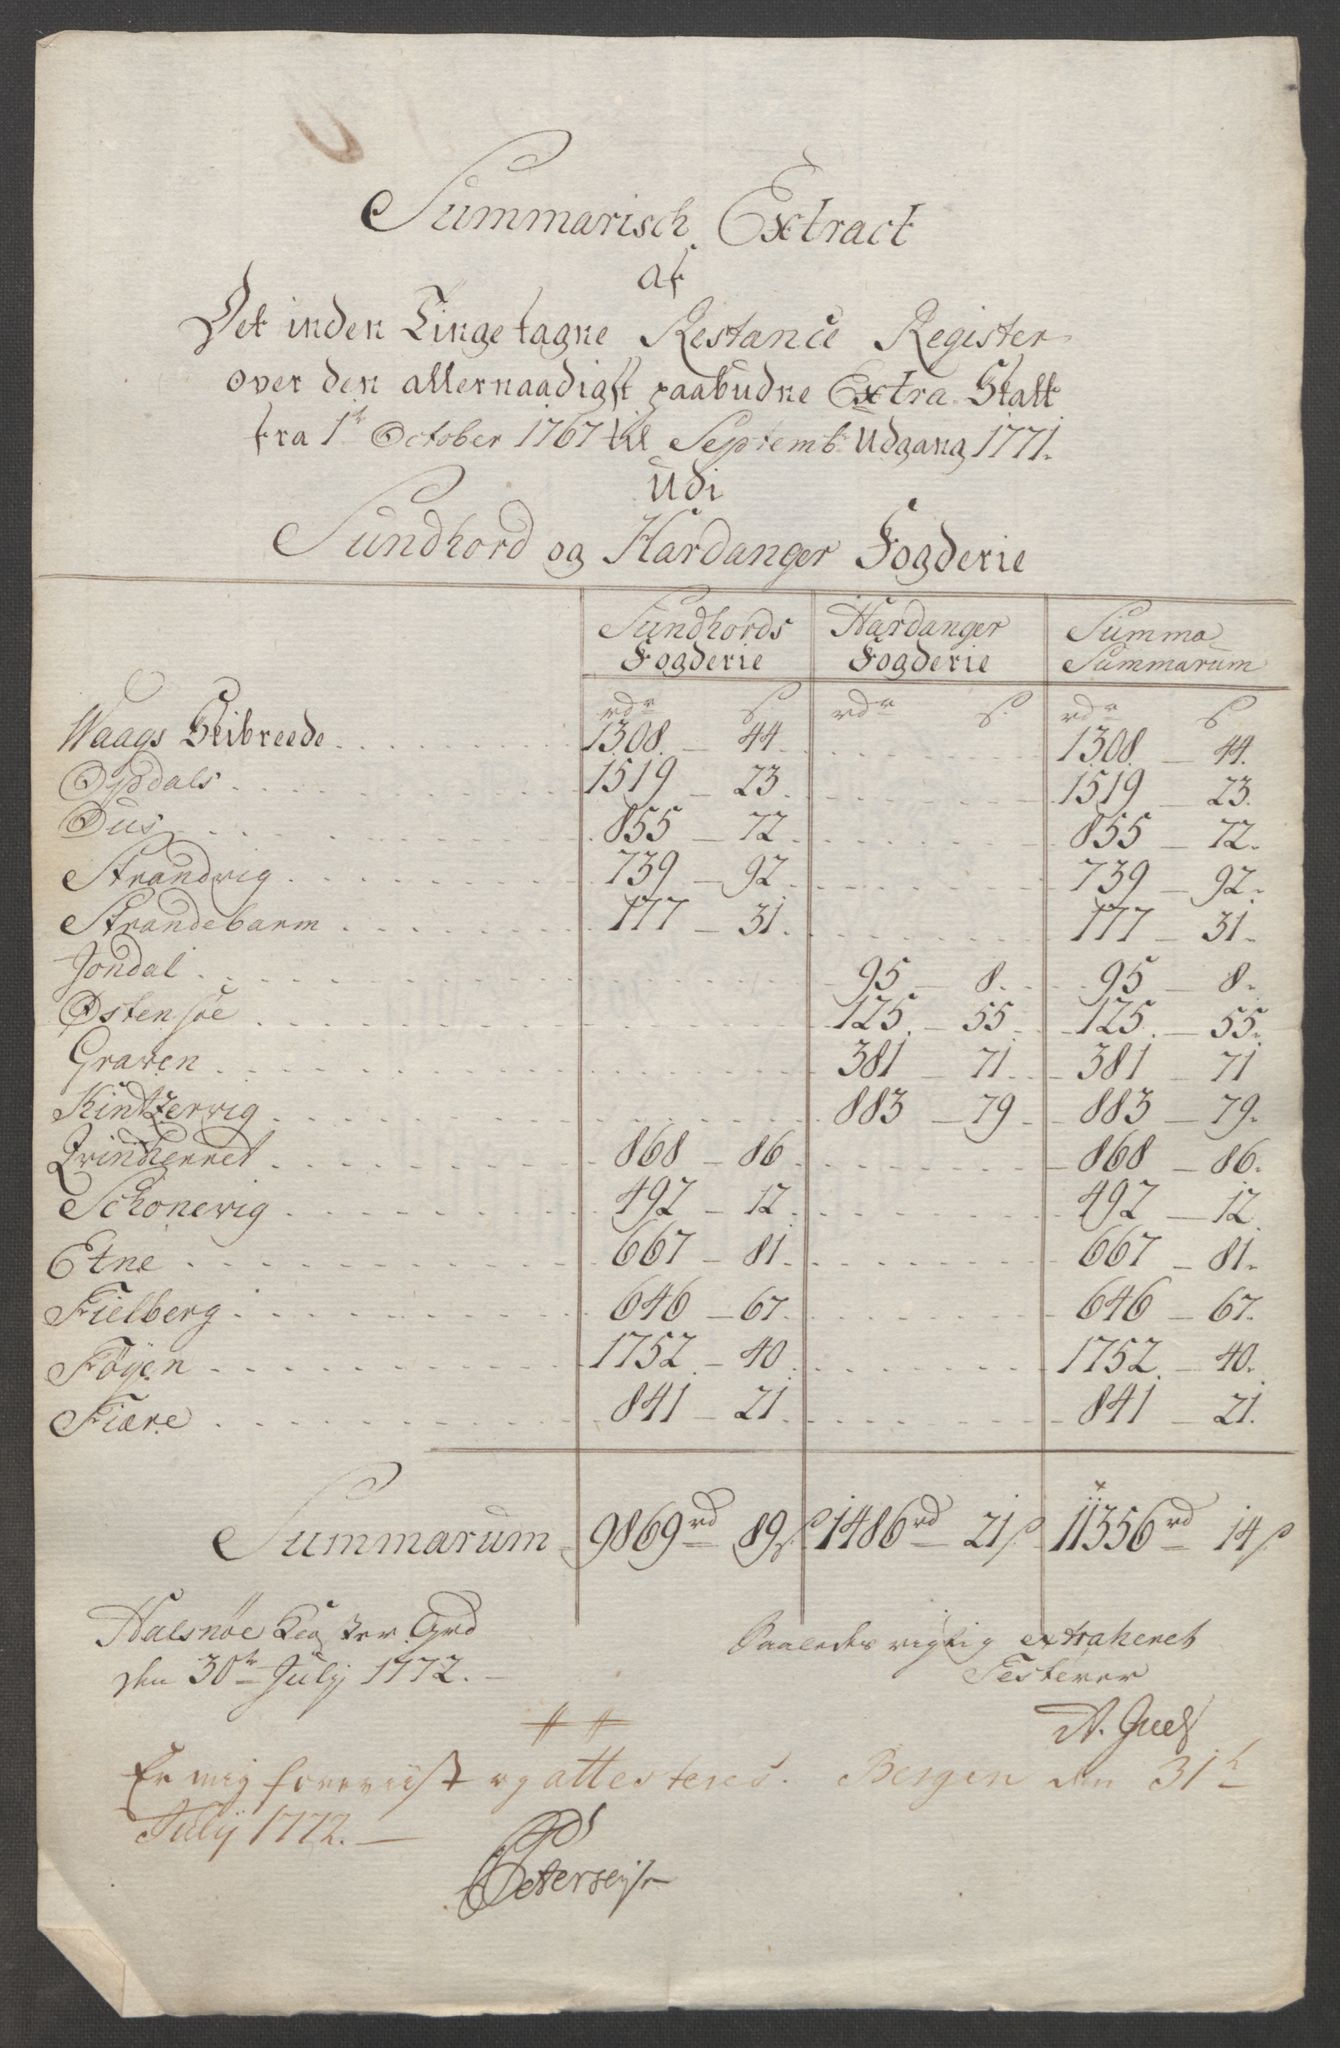 Summarisch Extract
af
Det inden Tinge tagne Restance Register
over den allernaadigst paabudne Extra Skatt
fra 1te October 1767 til Septembr Udgang 1771.
Udi
Sundhord og Hardanger Fogderie
Sundhords Fogderie Hardanger Fogderie Summa Summarum
rdr ß rdr ß rdr ß
Waags Skibreede 1308 44 1308 44
Opdals 1519 23 1519 23
Ous 855 72 855 72
Strandvig 739 92 739 92
Strandebarm 177 31 177 31
Jondal 95 8 95 8
Østensøe 125 55 125 55
Graven 381 71 381 71
Kintzervig 883 79 883 79
Qvindherret 868 86 868 86
Schonevig 492 12 492 12
Etne 667 81 667 81
Fielberg 646 67 646 67
Føyen 1752 40 1752 40
Fiære 841 21 841 21
Summarum 9869rd 89ß 1486rd 21ß 11356rd 14ß
Halsnøe Closter Grd Saaledes rigtig extraheret
den 30te Julij 1772. Testerer
A. Juel
Er mig foreviist og attesteres. Bergen den 31te
Julij 1772.
Petersen